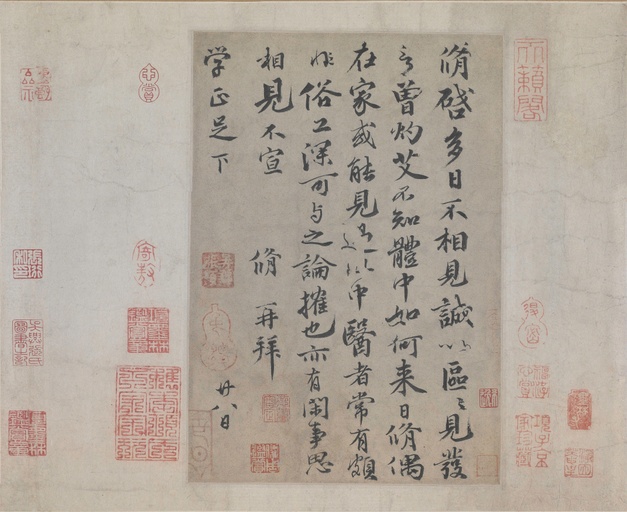 天籟閣
脩啓多日不相見誠以區〻見發
言曾灼艾不知體中如何来日脩偶
在家或能見過此中醫者常有頗
非俗工深可与之論搉也亦有閑事思
相見不宣 脩再拜
廿八日
学正足下